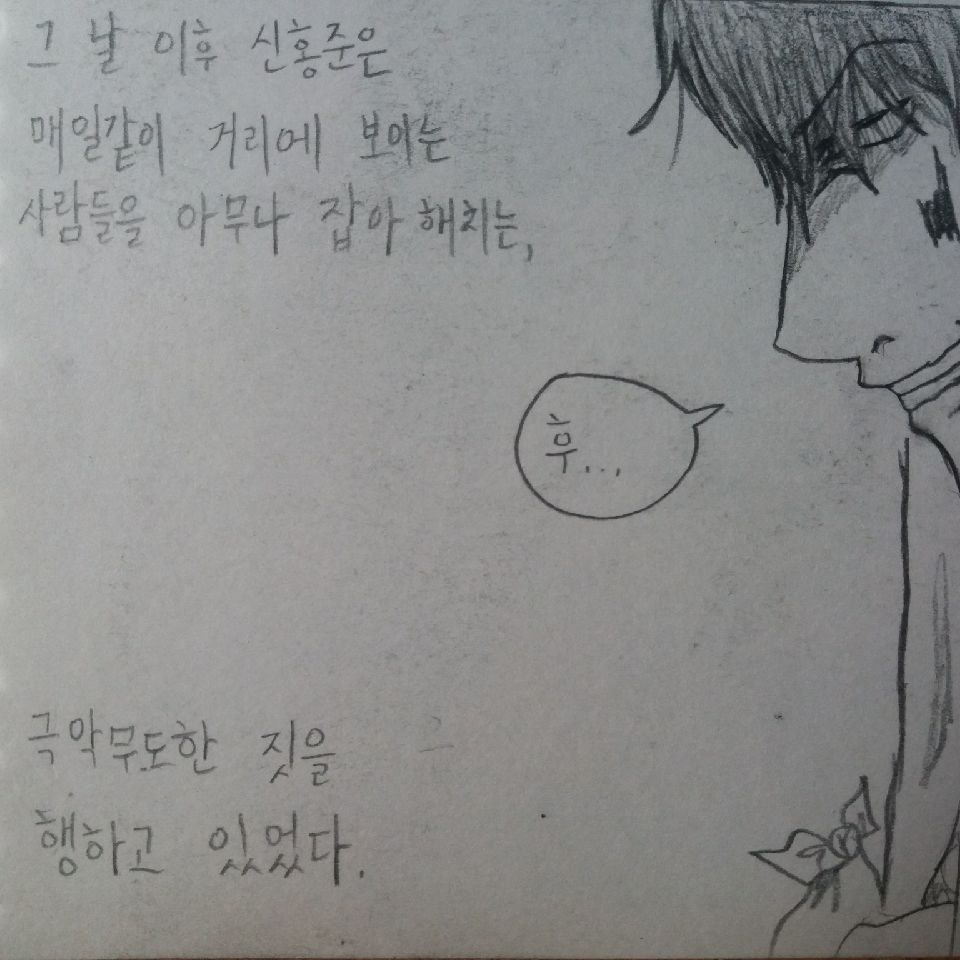 그 날 이후 신홍준은
매일같이 거리에 보이는
사람들을 아무나 잡아 해치는,
후...
극악무도한 짓을
행하고 있었다.